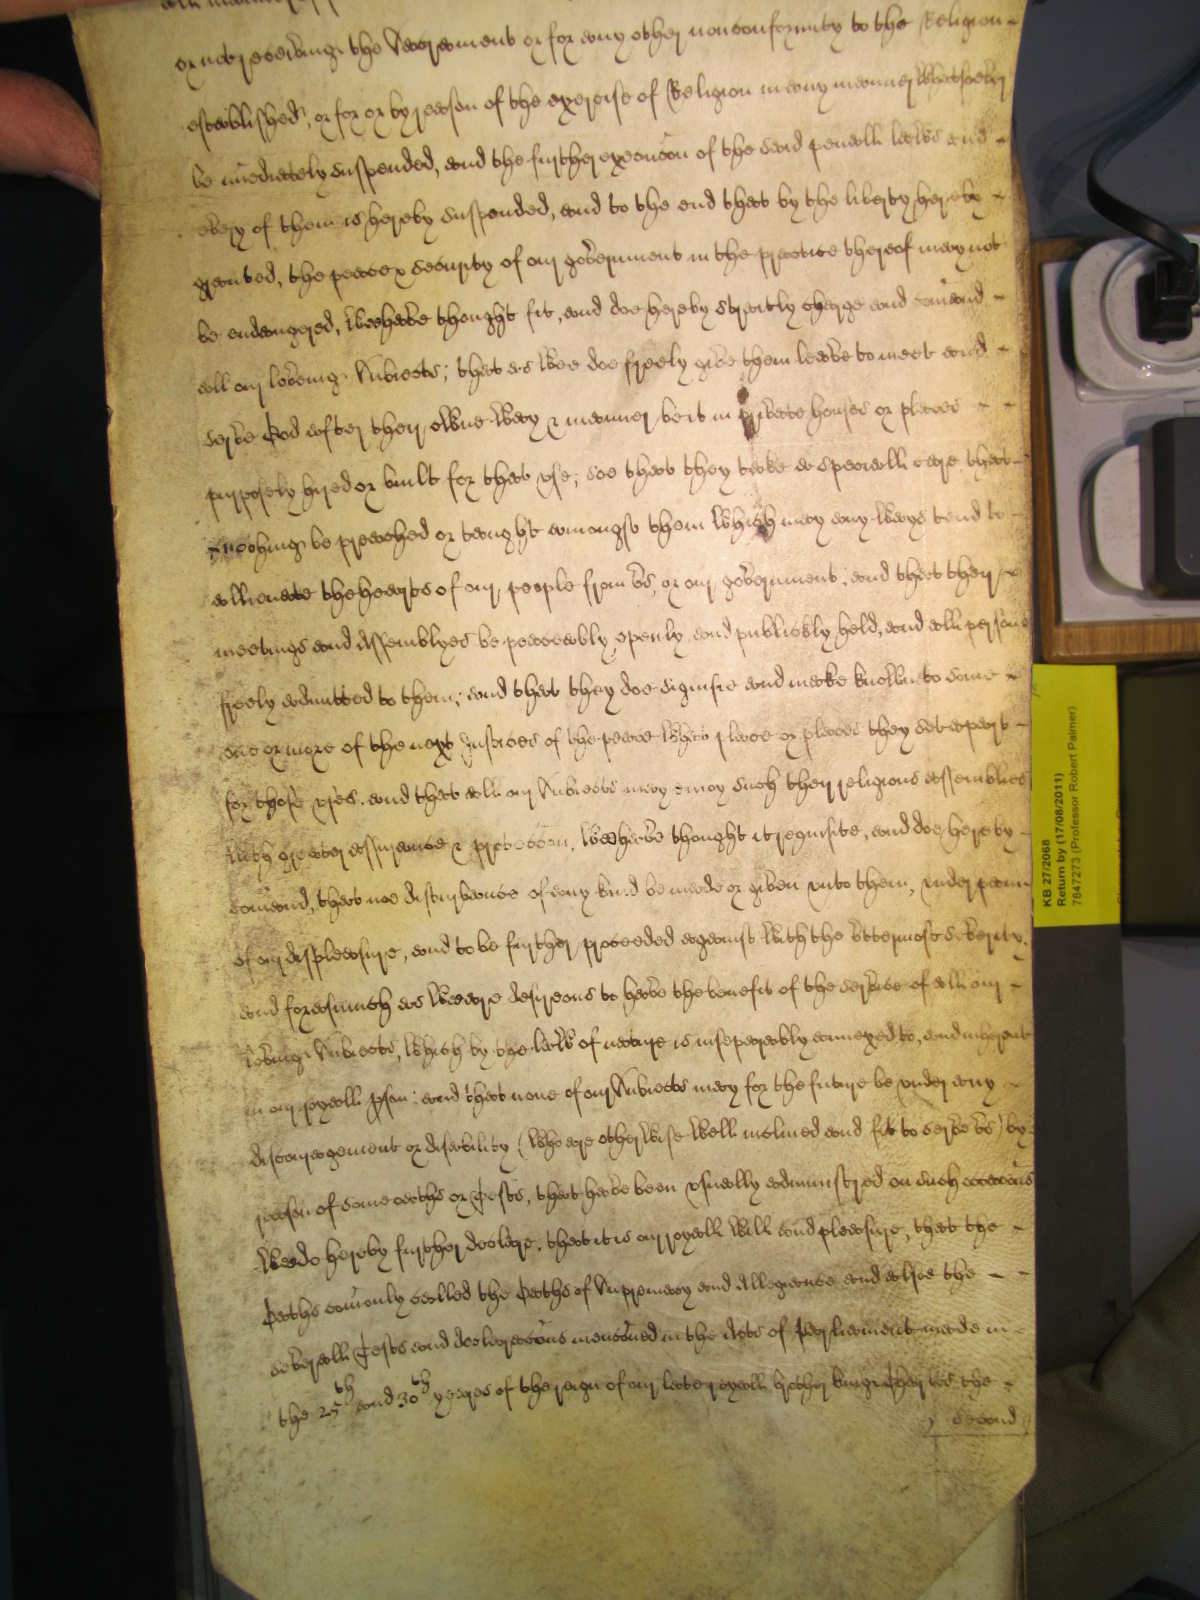 or not receiveing the Sacrament or for any other nonconformity to the Religion
established, or for or by reason of the exercise of Religion in any manner whatsoever
be im̄ediately suspended, and the further execuc̄on of the said penall lawes and
every of them is hereby suspended, and to the end that by the liberty hereby
granted, the peace & security of our government in the practice thereof may not
be endangered, Wee have thought fit, and doe hereby straitly charge and com̄and
all our loveing Subiects; that as wee doe freely give them leave to meet and
serve God after their owne way & manner be it in private houses or places
purposely hired or built for that vse; soe that they take a speciall care that
nothing be preached or taught amongst them which may any wayes tend to
allienate the hearts of our people from vs, or our government; and that their
meetings and Assemblyes be peaceably, openly and publickly held, and all persons
freely admitted to them; and that they doe signifie and make knowne to some
one or more of the next Justices of the peace what place or places they set apart
for those vses. and that all our Subiects may enioy such their religious assemblies
with greater assurance & protecc̄on, Wee have thought it requisite, and doe hereby
com̄and, that noe disturbance of any kind be made or given vnto them, vnder paine
of our displeasure, and to be further proceeded against with the vttermost severity.
and forasmuch as Wee are desireous to have the benefit of the service of all our
loveing Subiects, which by the law of nature is inseperably annexed to, and inherent
in our royall pson; and that none of our Subiects may for the future be vnder any
discouragement or disability (who are otherwise well inclined and fit to serve vs) by
reason of some oaths or Tests, that have been vsually administred on such occasions
Wee do hereby further declare, that it is our royall will and pleasure, that the
Oaths com̄only called the Oaths of Supremacy and Allegiance and alsoe the
severall Tests and declarac̄ons menc̄oned in the Acts of Parliament made in
the 25th and 30th yeares of the reign of our late royall brother king Charles the
second
KB 27/2068
Return by (17/08/2011)
7847273 (Professor Robert Palmer)